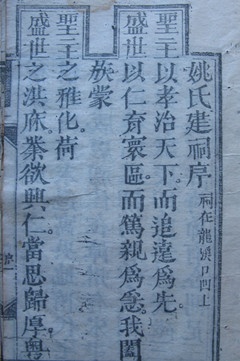 姚氏建祠序 祠在龍頭口凹上
聖王以孝治天下。而追遠為先。
盛世以仁育寰區。而篤親為急。我闔
族蒙
聖王之雅化。荷
盛世之淇庥。業欲興仁。當思歸厚。粵